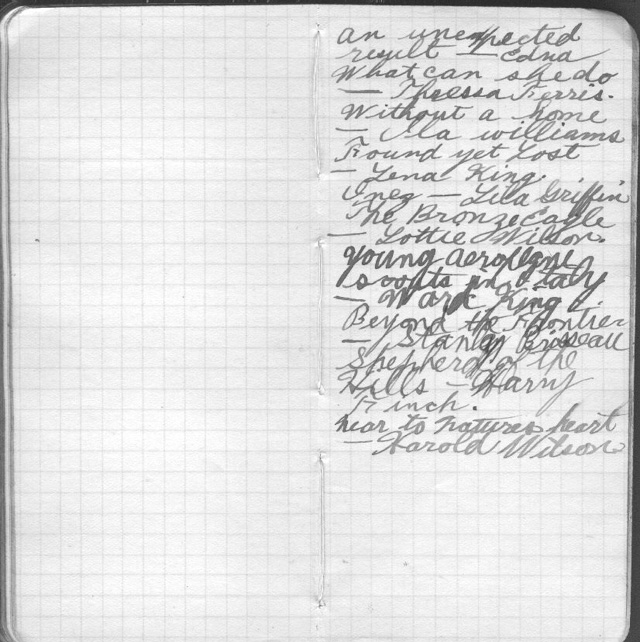 an unexpected
result — Edna
What can she do
— Thressa Ferris.
Without a home
— Ila williams
Found yet Lost
— Lena King.
Inez — Lila Griffin
The Bronze Eagle
— Lottie Wilson.
young aeroplane
scouts in Italy
— Mark King
Beyond the Frontier
— Stanley
Shepherd of the
Hills — Harry
Finch.
near to natures heart
— Harold Wilson